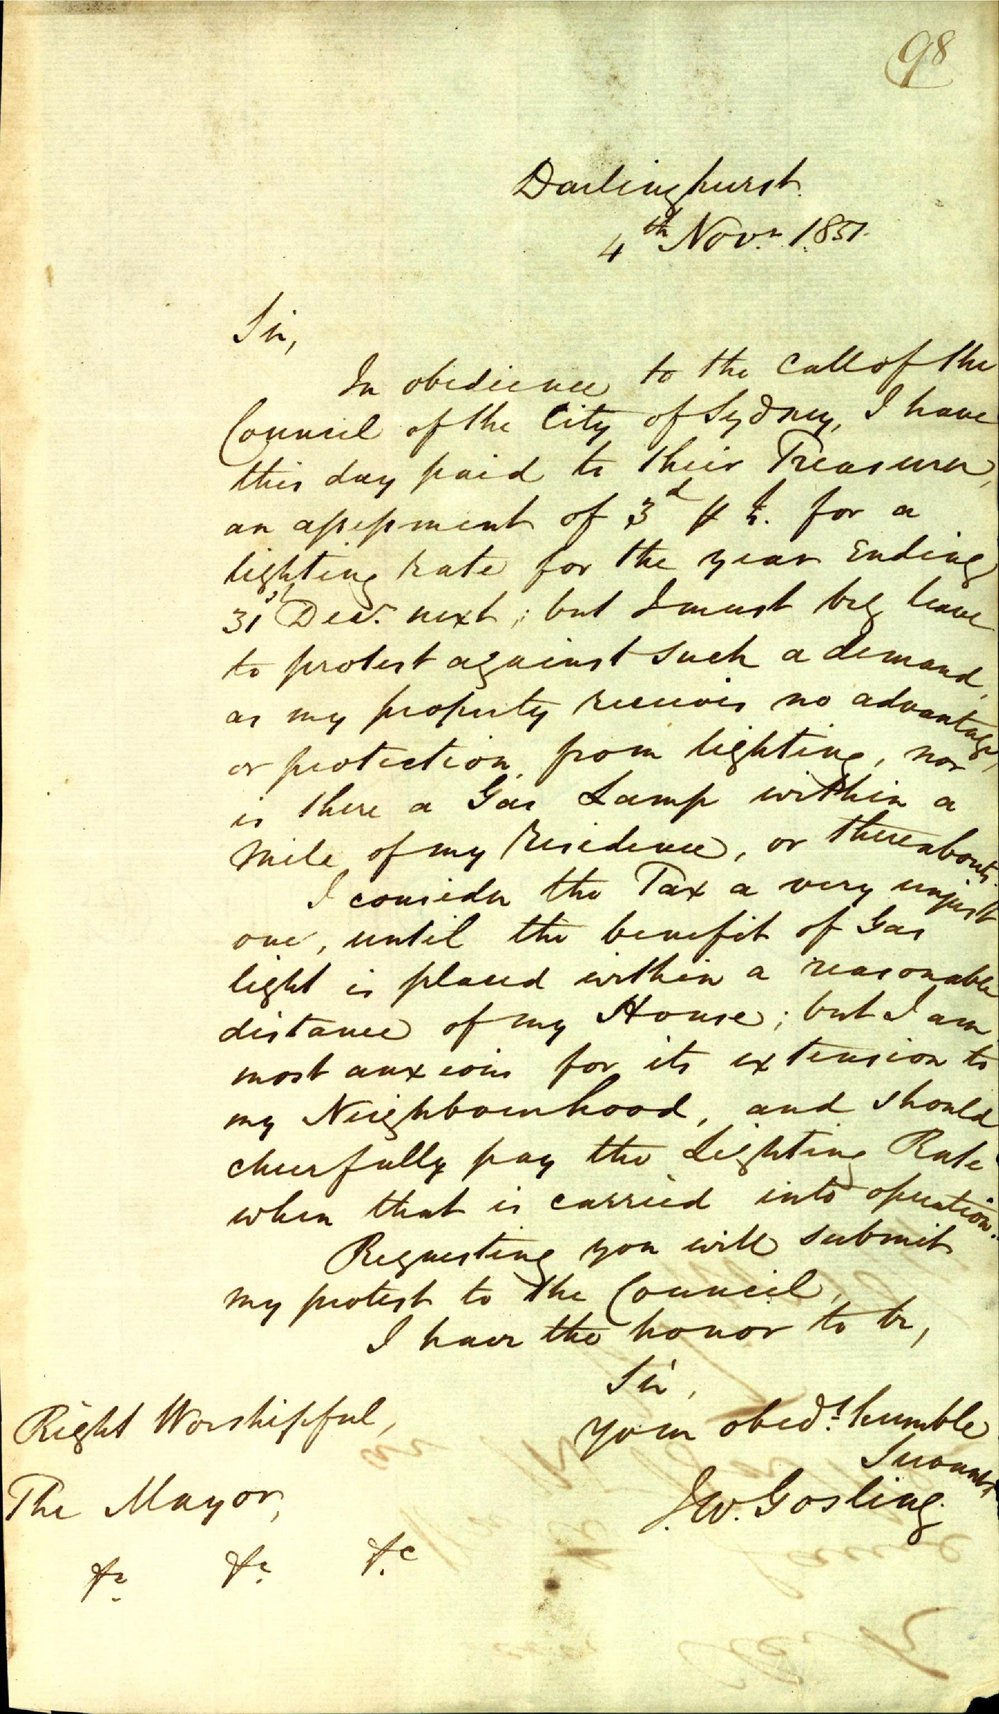 98
Darlinghurst.
4th Novr. 1851.
Sir,
In obedience to the Call of the
Council of the City of Sydney, I have
this day paid to their Treasurer,
an assessment of 3d for a
lighting rate for the year Ending
31st Decr. next; but I must beg leave
to protest against such a demand,
as my property receives no advantage,
or protection, from lighting, nor
is there a Gas Lamp within a
Mile, of my Residence, or thereabouts.
I consider the Tax a very unjust
one, until the benefit of Gas
light is placed within a reasonable
distance of my House; but I am
most anxious for its extension to
my Neighbourhood, and should
cheerfully pay the Lighting Rate
when that is carried into operation.
Requesting you will submit
my protest to the Council,
I have the honor to be,
Sir,
Your obedt. humble
Servant
J. W. Gosling.
Right Worshipful,
The Mayor,
&c. &c. &c